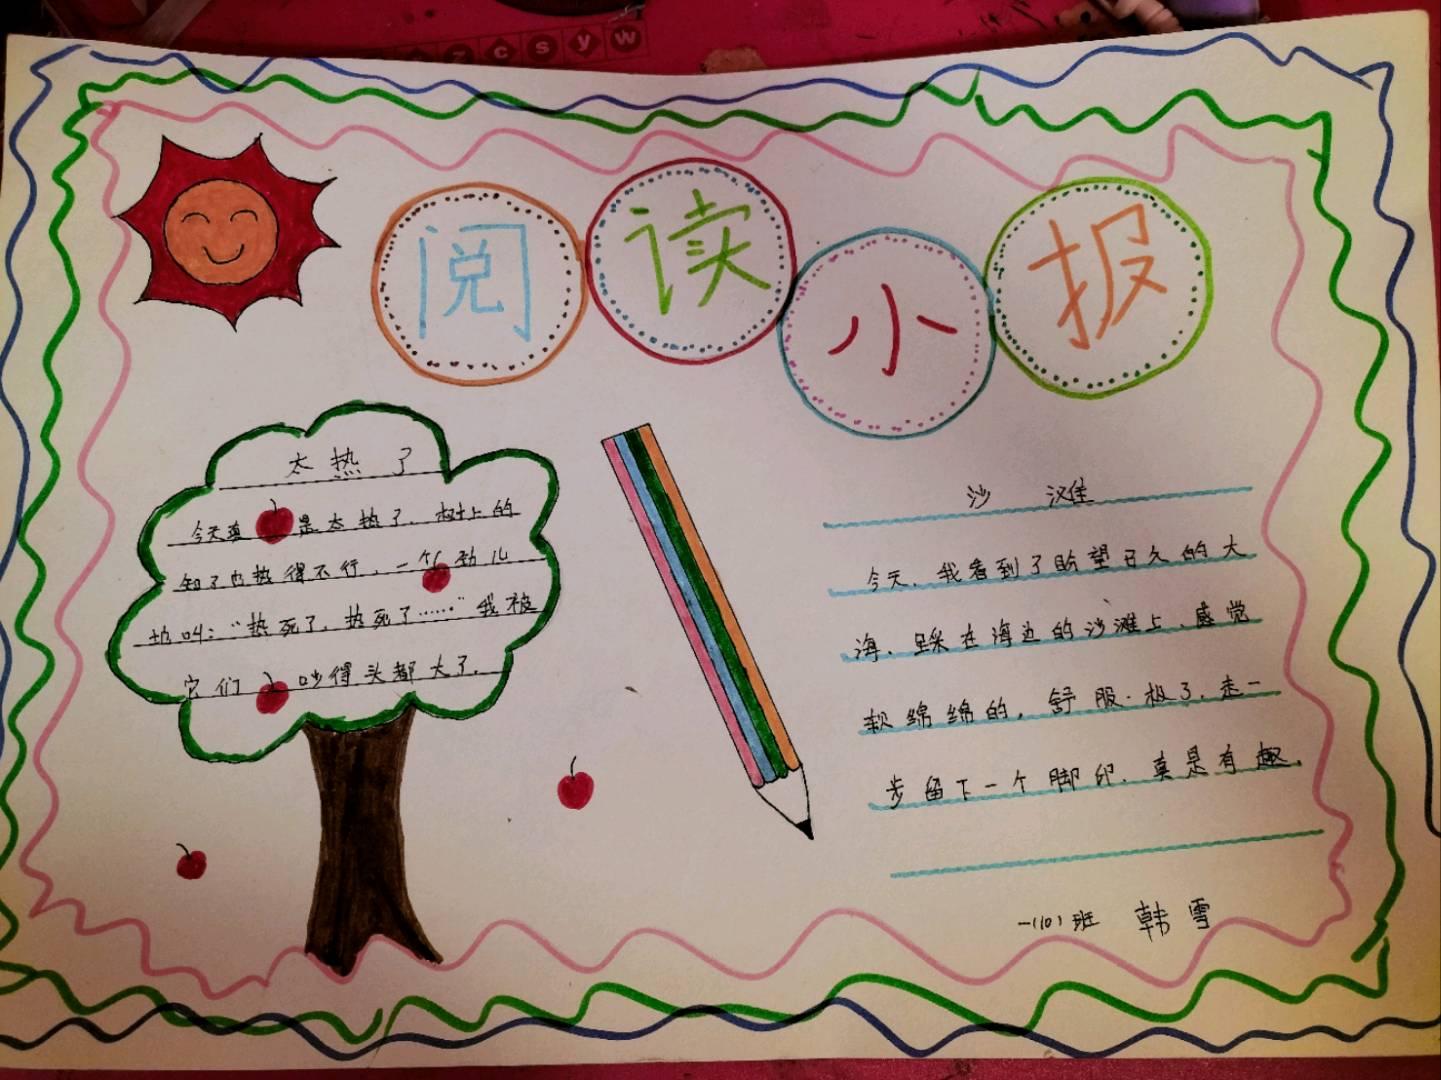 z c s y w
阅读小报
太热了
今天真是太热了，树上的
知了也热得不行，一个劲儿
地叫：“热死了，热死了……”我被
它们吵得头都大了。
沙 滩
今天，我看到了盼望已久的大
海，踩在海边的沙滩上，感觉
软绵绵的，舒服极了，走一
步留下一个脚印，真是有趣。
一（10）班 韩雪